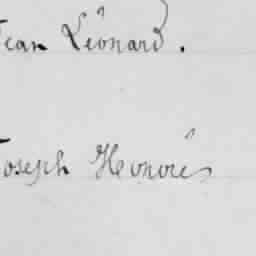 Jean Léonard.
Joseph Honoré